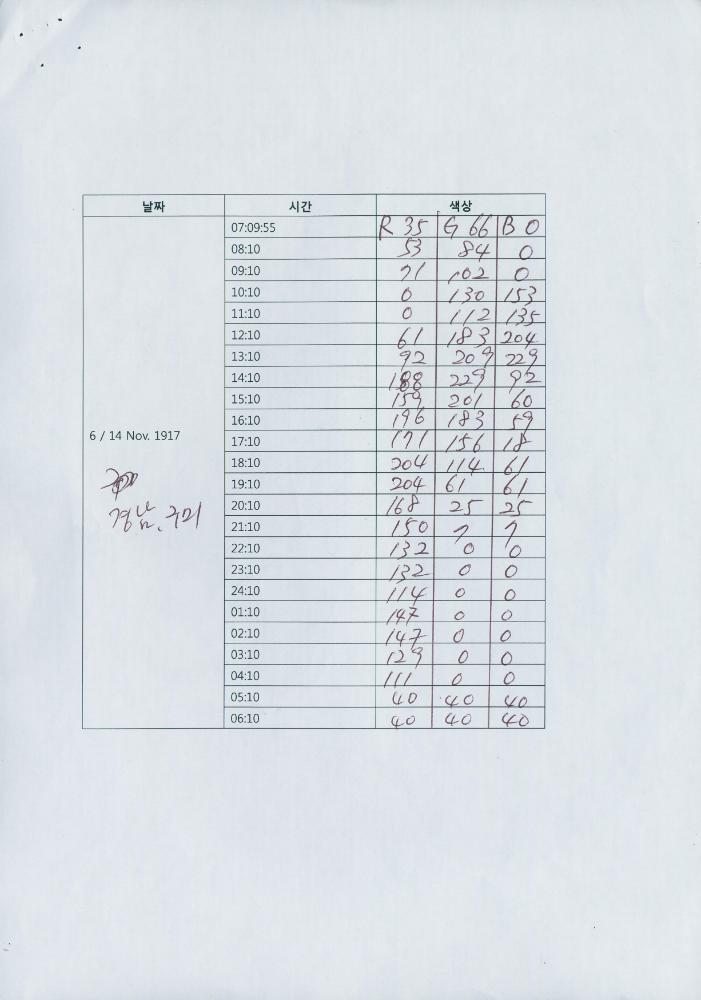 날짜 시간 색상
07:09:55 R 35 G 66 B 0
08:10 53 84 0
09:10 71 102 0
10:10 0 130 153
11:10 0 112 135
12:10 61 183 204
13:10 92 209 229
14:10 188 229 92
15:10 159 201 60
16:10 196 183 59
6 / 14 Nov. 1917
17:10 171 156 18
18:10 204 114 61
19:10 204 61 61
20:10 168 25 25
경남. 구미
21:10 150 7 7
22:10 132 0 0
23:10 132 0 0
24:10 114 0 0
01:10 147 0 0
02:10 147 0 0
03:10 129 0 0
04:10 111 0 0
05:10 40 40 40
06:10 40 40 40